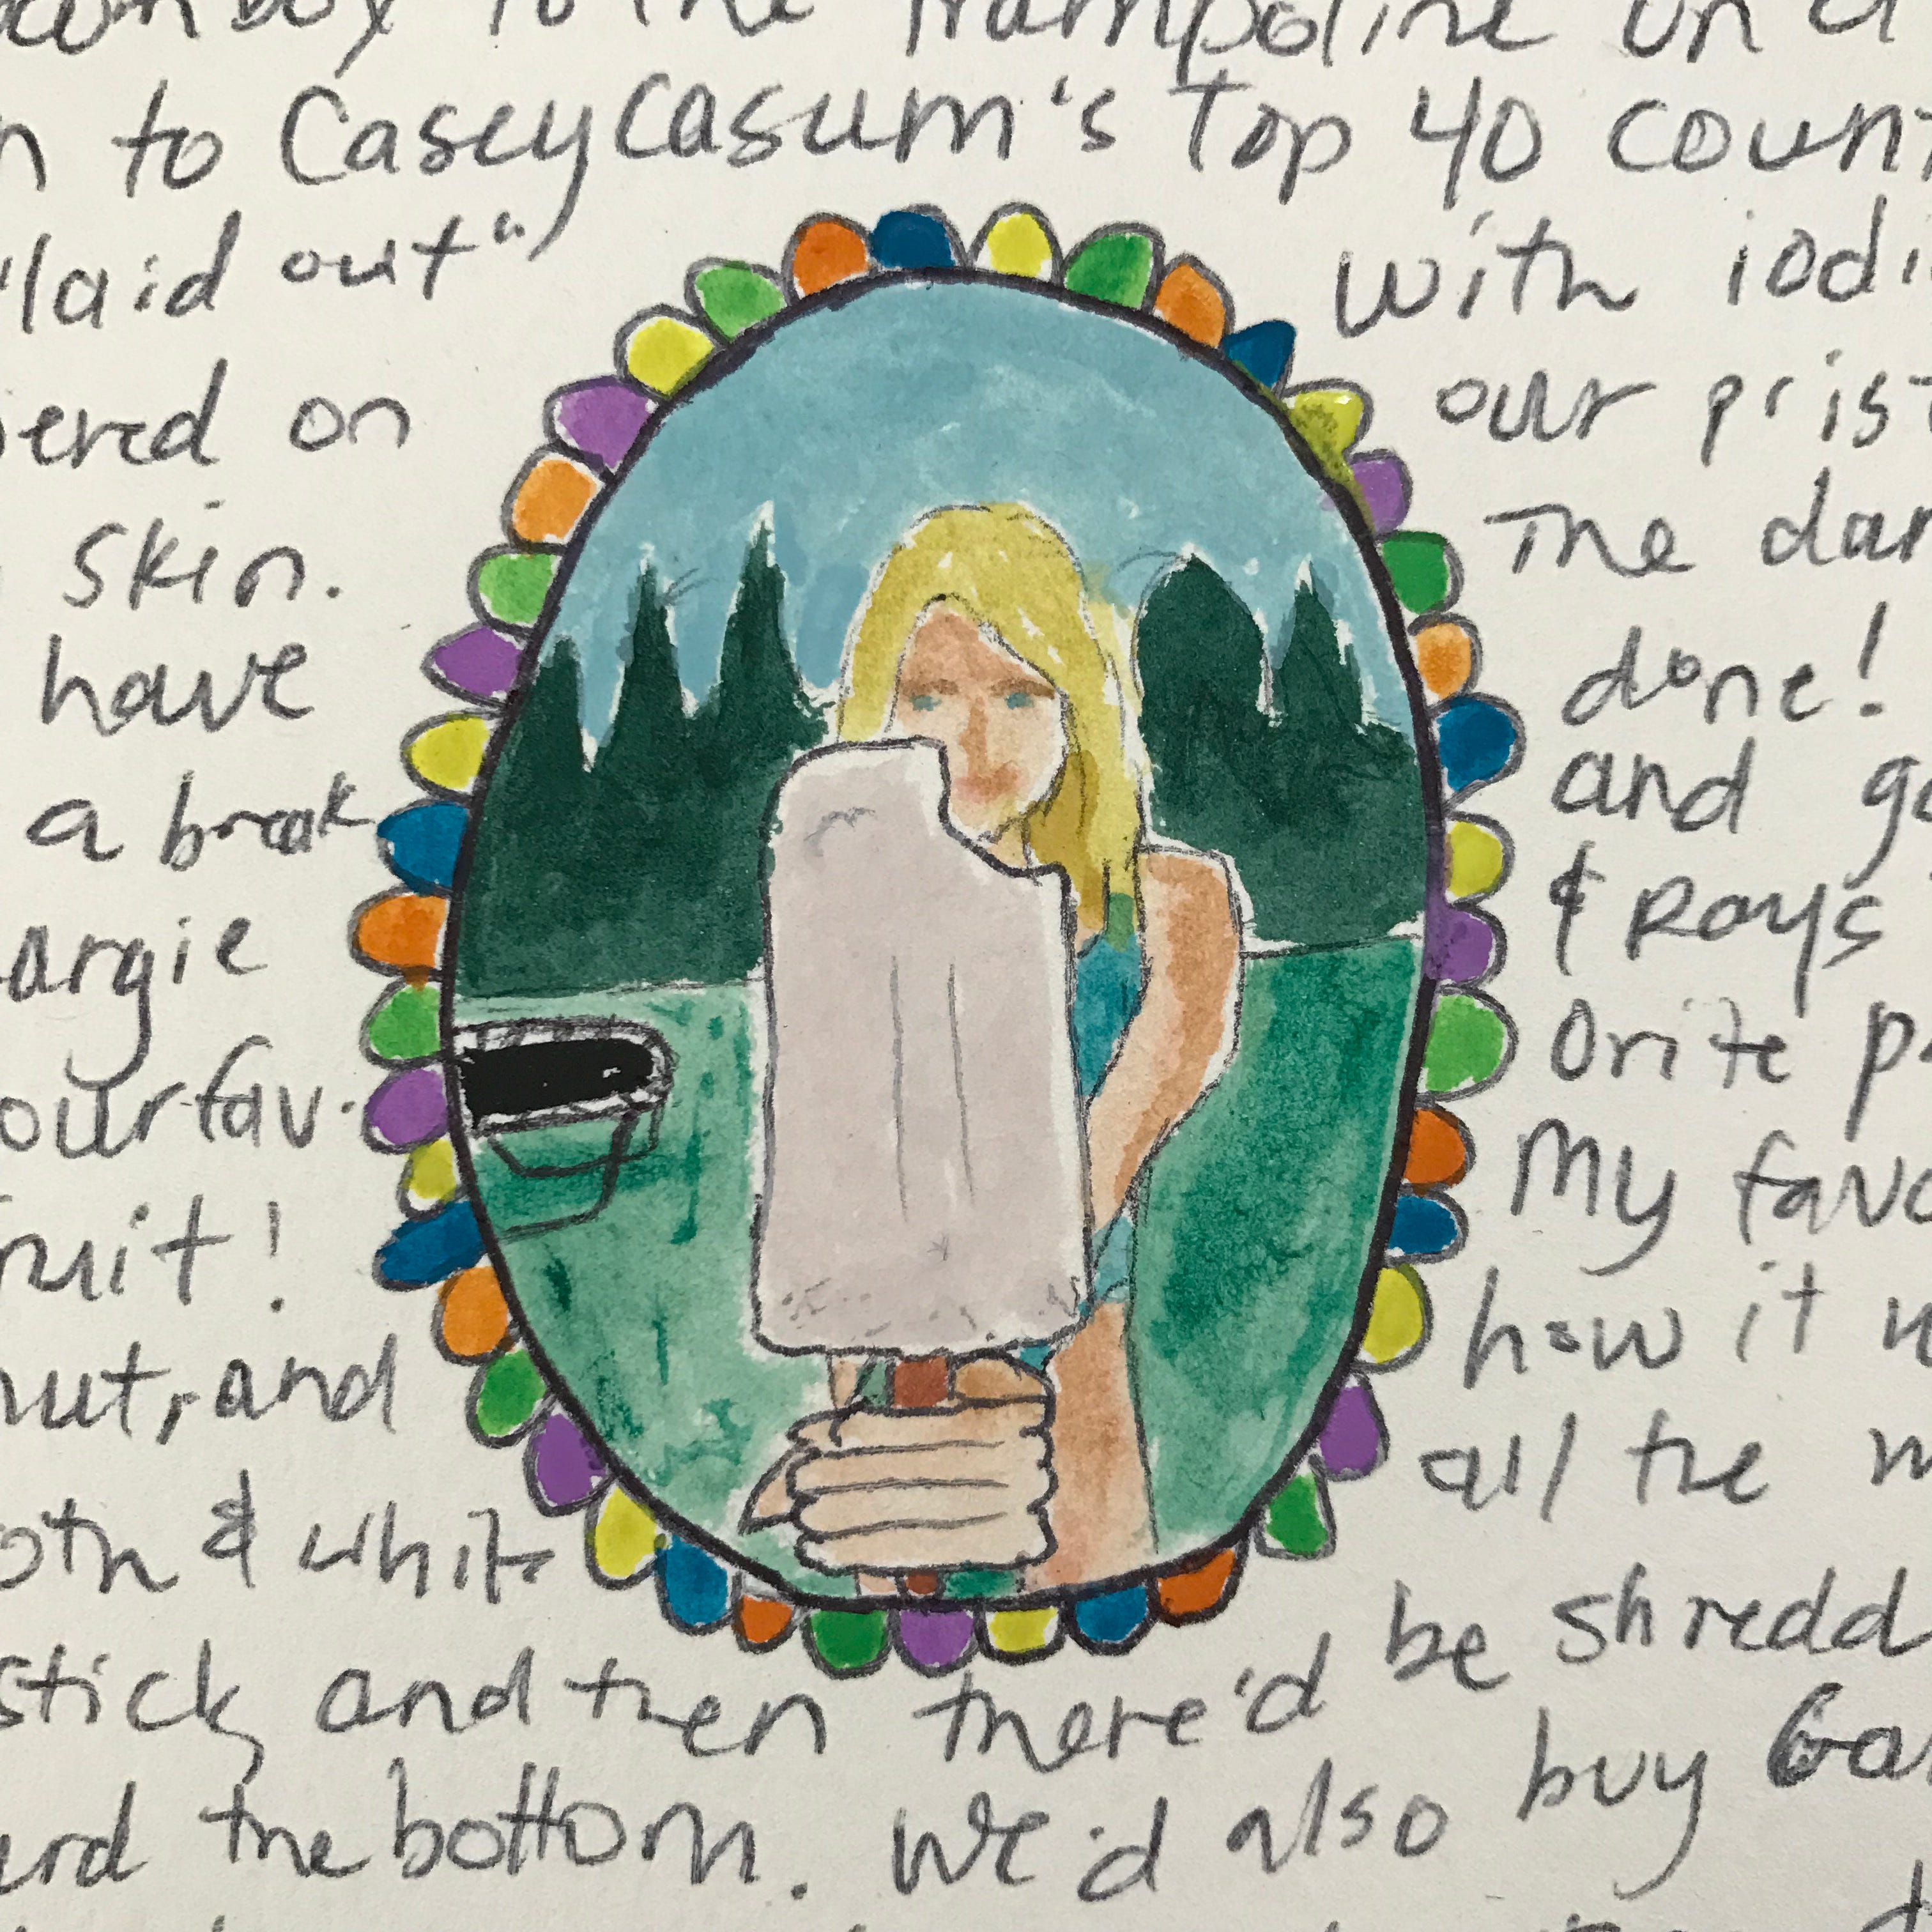 to the trampoline on a
n to Casey Casum's Top 40 count
"laid out" with iodi
ered on our prist
skin. The dar
have done!
a break and go
argie & Rays
our fav- orite p
fruit! My favo
how it w
nut, and all the m
oth & white be shredd
stick, and then there'd
ard the bottom. We'd also buy Ga